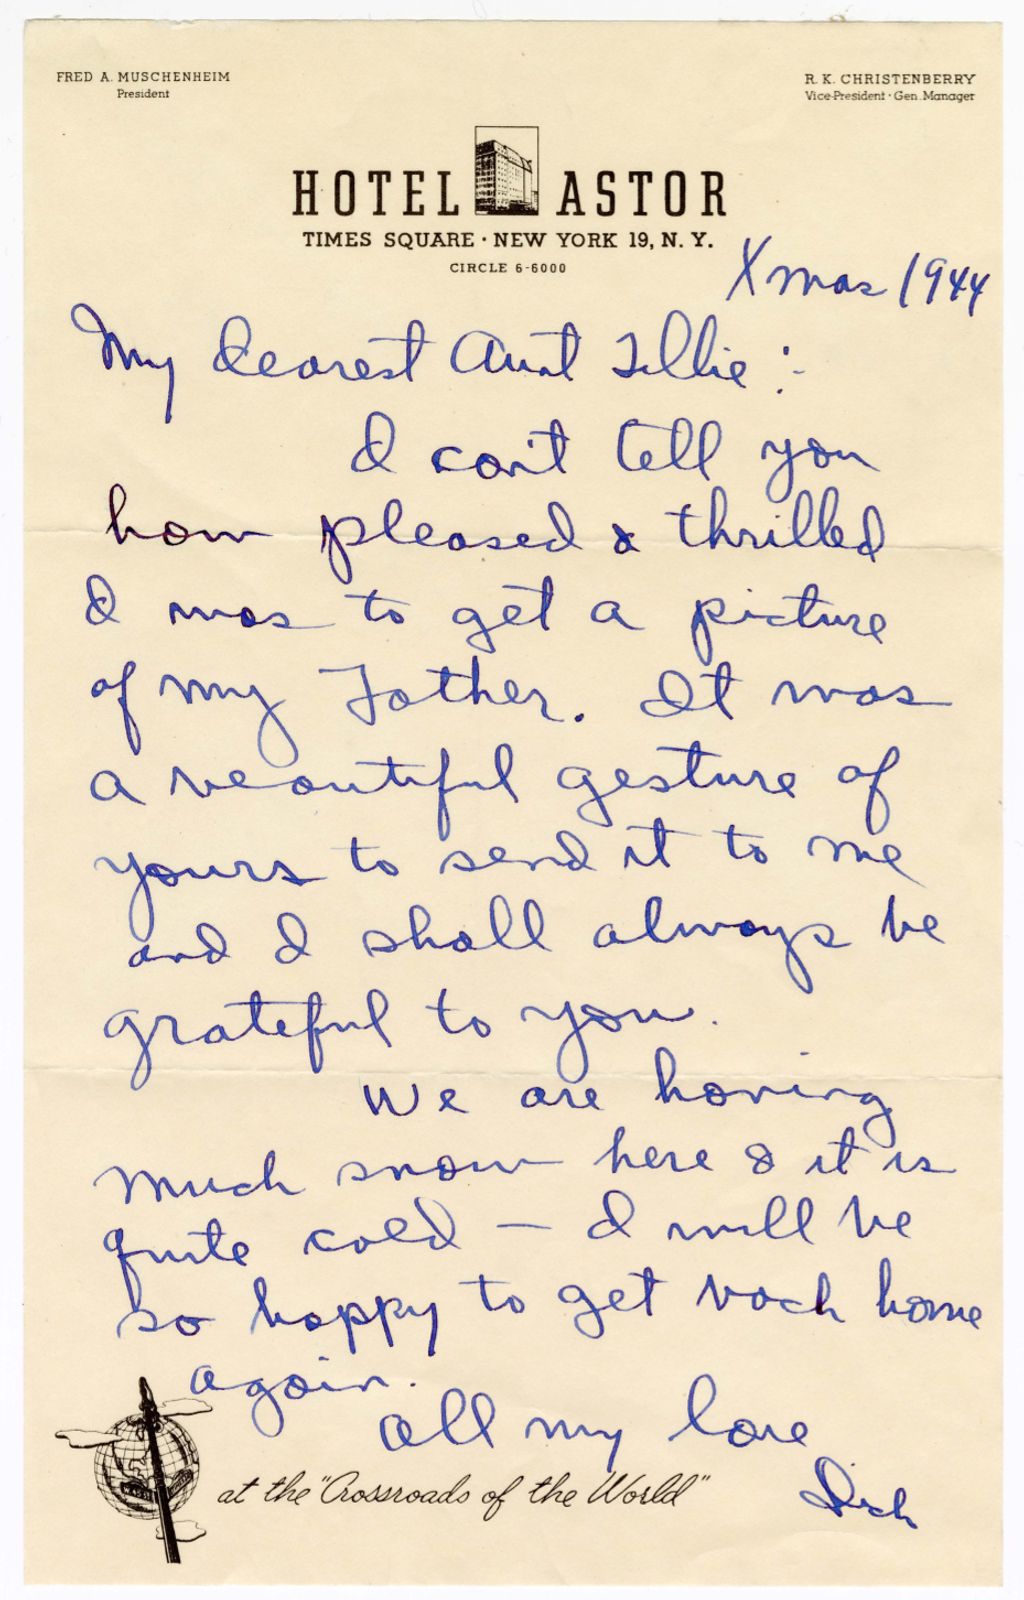 FRED A. MUSCHENHEIM
President
R. K. CHRISTENBERRY
Vice-President · Gen. Manager
HOTEL ASTOR
TIMES SQUARE · NEW YORK 19, N. Y.
CIRCLE 6-6000
Xmas 1944
My dearest Aunt Tillie :-
I can't tell you
how pleased & thrilled
I was to get a picture
of my Father. It was
a beautiful gesture of
yours to send it to me
and I shall always be
grateful to you.
We are having
much snow here & it is
quite cold — I will be
so happy to get back home
again.
All my love
Dick
at the "Crossroads of the World"